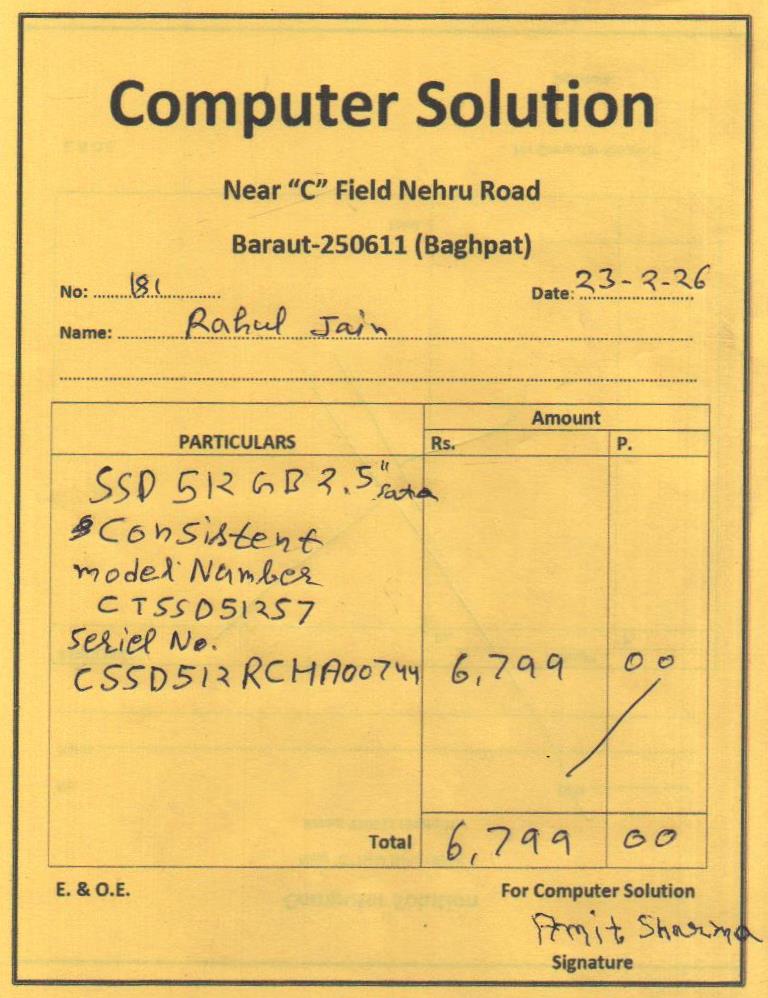 Computer Solution
Near “C” Field Nehru Road
Baraut-250611 (Baghpat)
No: 181 Date: 23-2-26
Name: Rahul Jain
Amount
PARTICULARS Rs. P.
SSD 512 GB 2.5" sata
Consistent
model Number
CTSSD512S7
Seriel No.
CSSD512RCHA00744 6,799 00
Total 6,799 00
E. & O.E. For Computer Solution
Amit Sharma
Signature